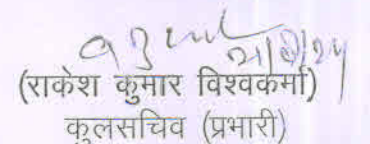 (राकेश कुमार विश्वकर्मा)
कुलसचिव (प्रभारी)